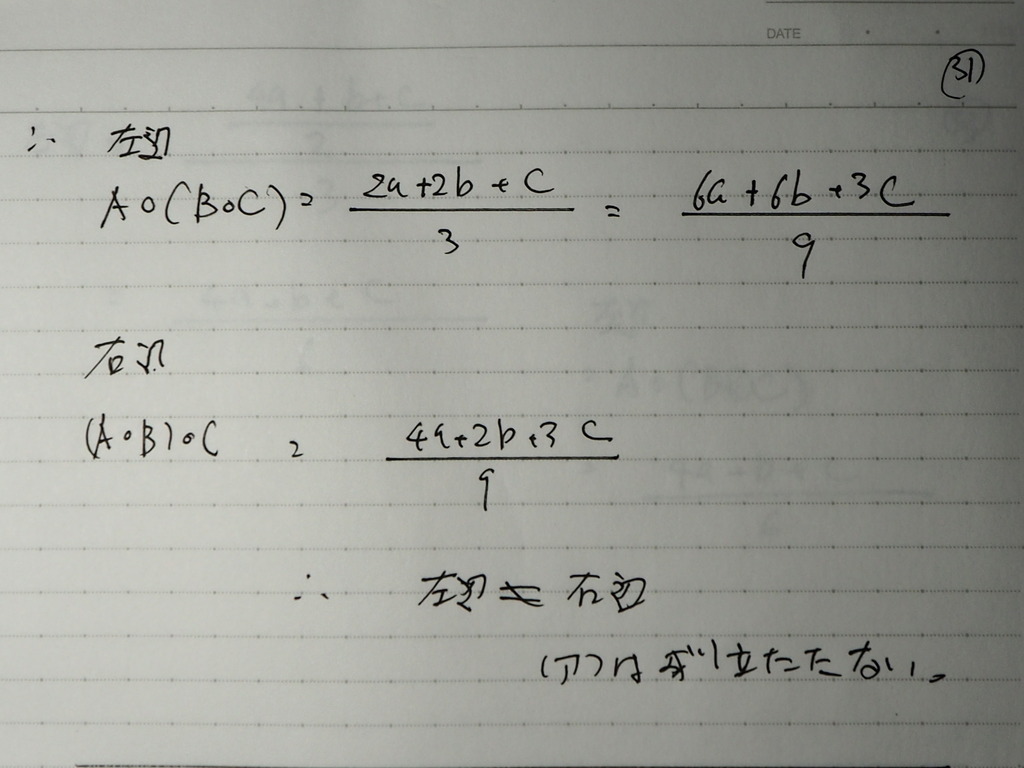 DATE
㉛
∴ 左辺
A∘(B∘C) = \frac{2a+2b+c}{3} = \frac{6a+6b+3c}{9}
右辺
(A∘B)∘C = \frac{4a+2b+3c}{9}
∴ 左辺 ≠ 右辺
(ア)は成り立たたない。